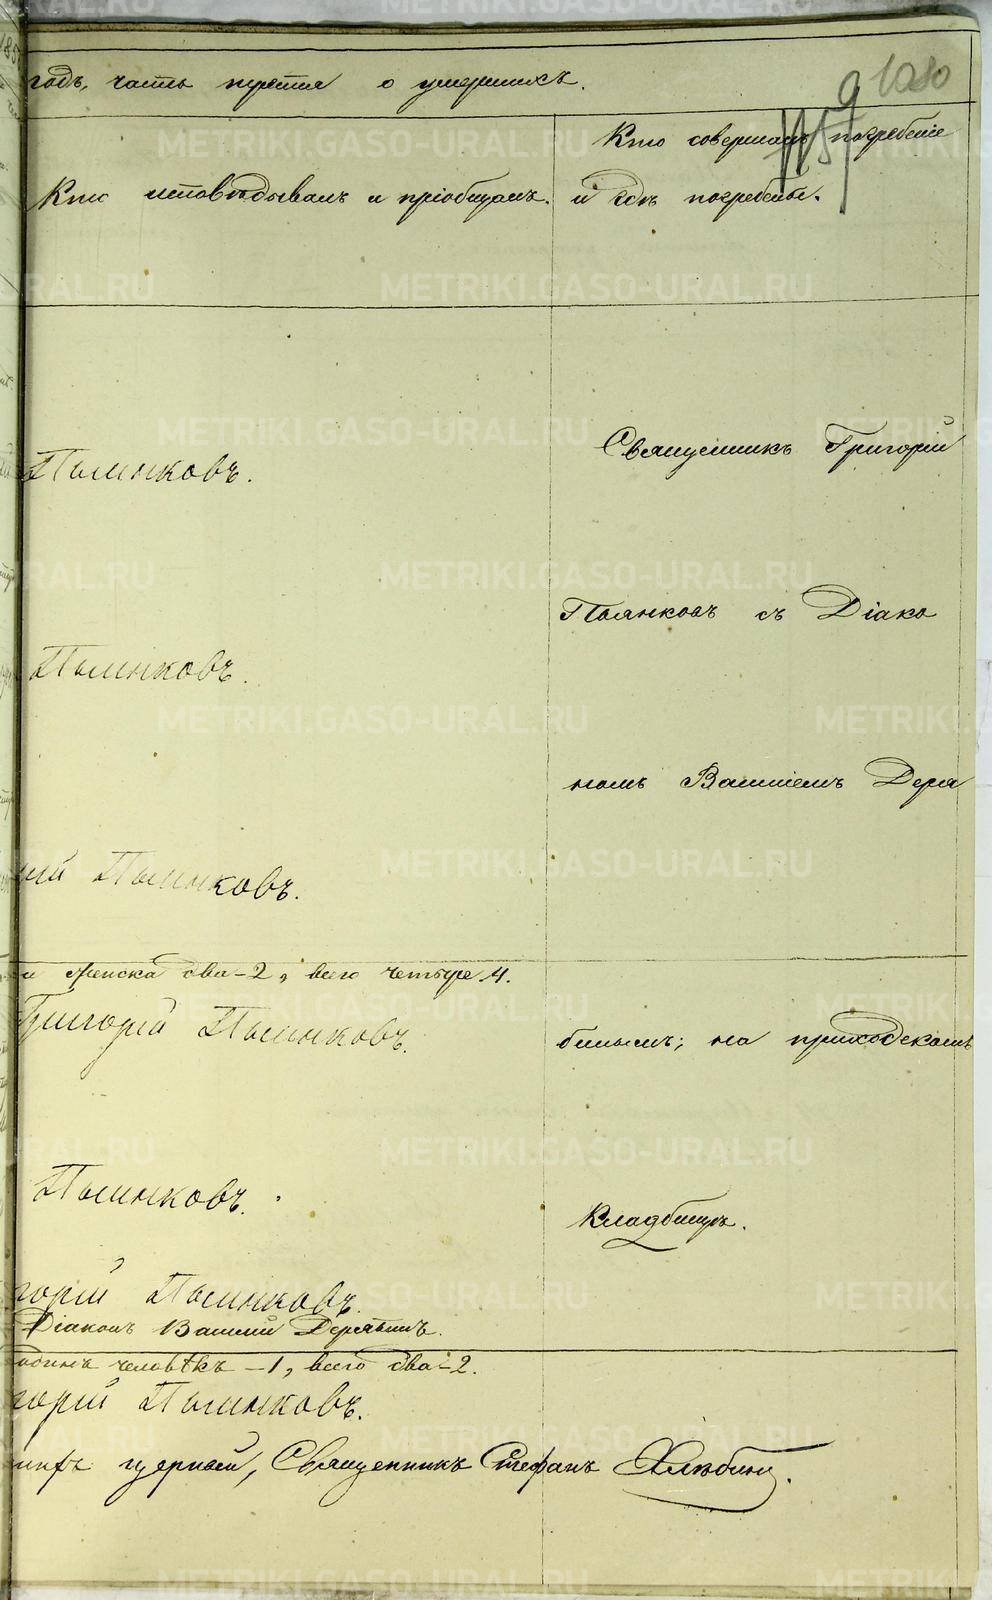 годъ, часть третія о умершихъ.
1080
159
Кто исповѣдывалъ и пріобщалъ.
Кто совершалъ погребеніе
и гдѣ погребены.
Пьянковъ.
Священникъ Григорій
Пьянковъ съ Діако
Пьянковъ.
номъ Василіемъ Деря
ій Пьянковъ.
и женска два-2, всего четыре 4.
Григорій Пьянковъ.
бинымъ; на приходскомъ
Пьянковъ.
Кладбищѣ.
горій Пьянковъ.
Діаконъ Василій Дерябинъ.
одинъ человѣкъ -1, всего два-2.
горій Пьянковъ.
Священникъ Стефанъ Хлѣбинъ.
METRIKI.GASO-URAL.RU